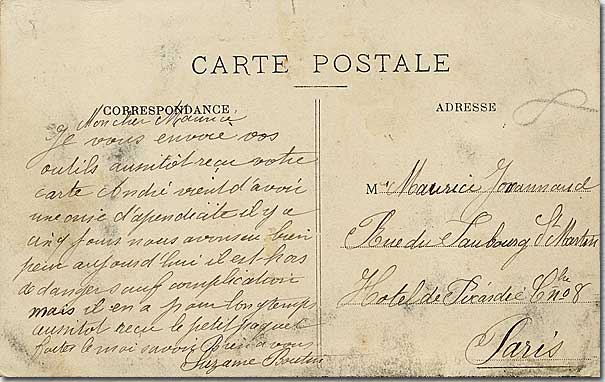 CARTE POSTALE
CORRESPONDANCE
ADRESSE
Mon cher Maurice
Je vous envoie vos
outils aussitôt reçu votre
carte André vient d'avoir
une crise d'apendicite il y a
cinq jours nous avons eu bien
peur aujourd'hui il est hors
de danger sauf complication
mais il en a pour longtemps
aussitot reçu le petit paquet
faites le moi savoir à vous
Suzanne
M Maurice
Rue du Faubourg St Martin
Hotel de Picardie Cbre no 8
Paris